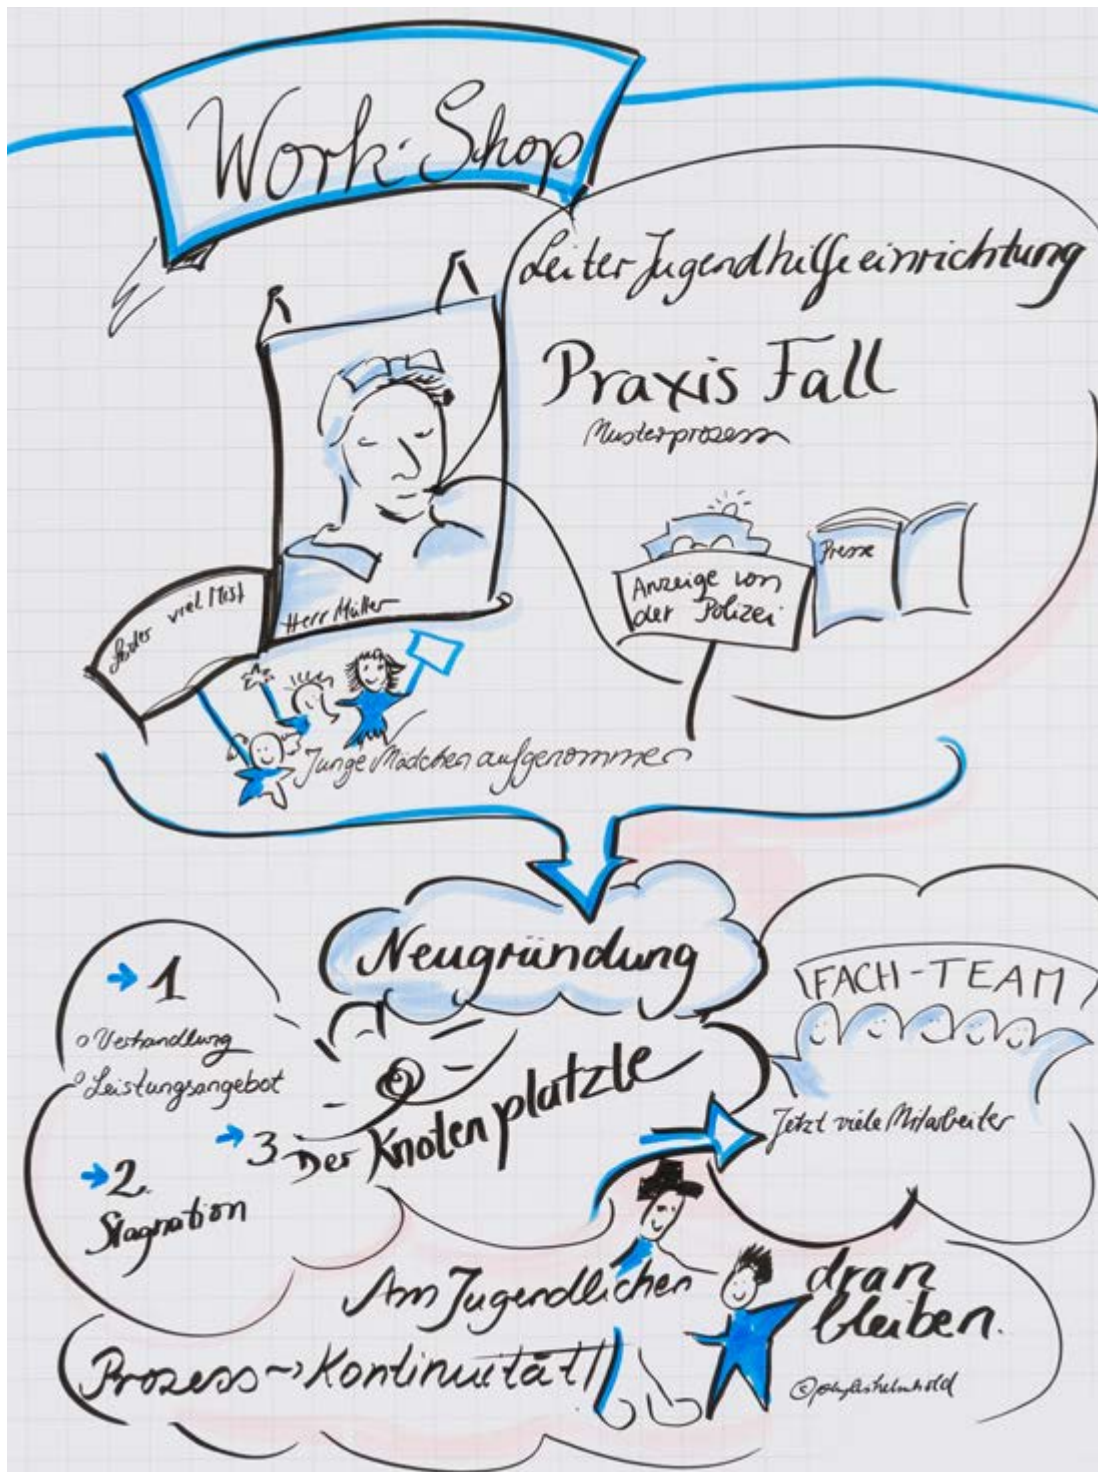 Work-Shop
Leiter Jugendhilfeeinrichtung
Praxis Fall
Musterprozess
Anzeige von
der Polizei
Presse
viel Mist
Herr Müller
Junge Mädchen aufgenommen
Neugründung
→ 1
Verhandlung
Leistungsangebot
→ 2.
Stagnation
→ 3.
Der Knoten platzte
FACH-TEAM
Jetzt viele Mitarbeiter
Am Jugendlichen
dran
bleiben.
Prozess → Kontinuität!